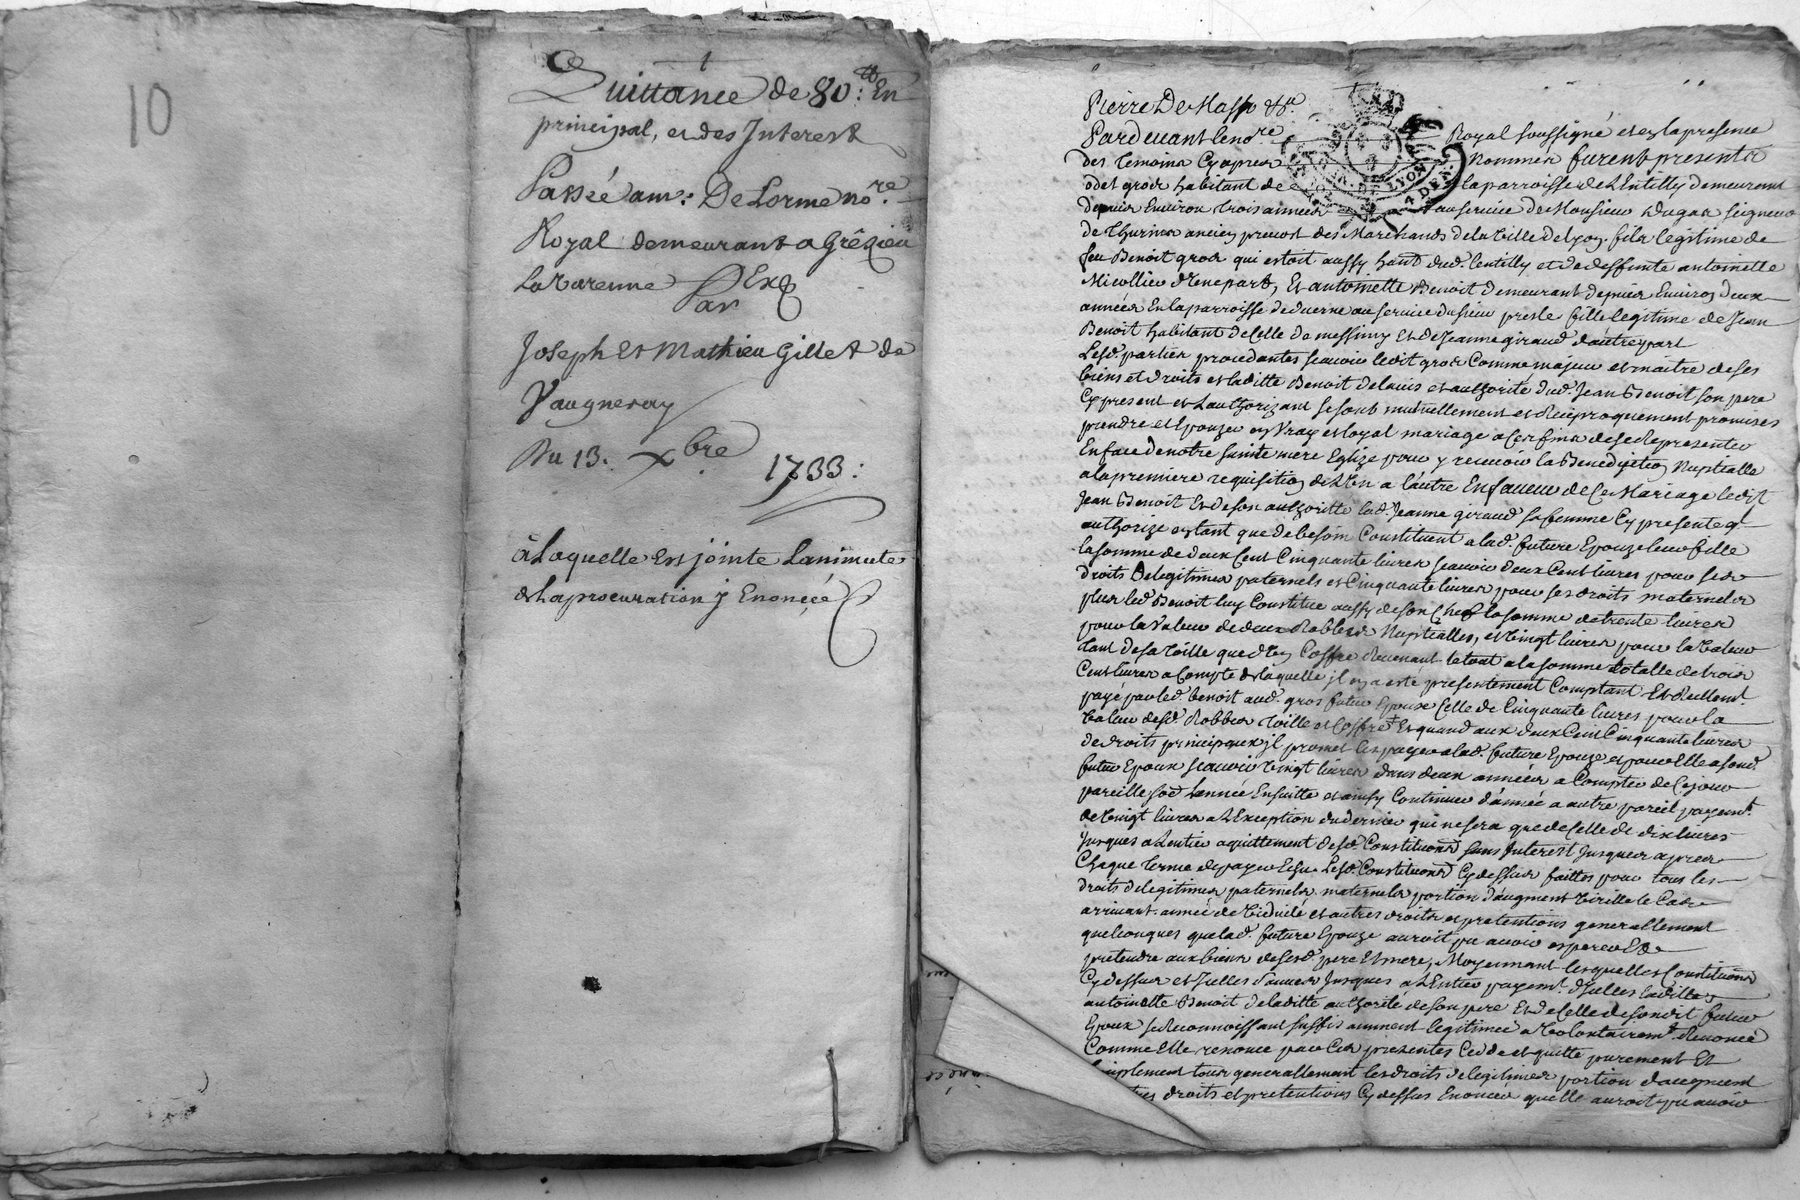 10
1
Quittance de 80.tt En
principal, et des Interest
Passée a mr: De Lorme no.re
Royal demeurant a Grêzieu
La Varenne Exp
Par
Joseph Et Mathieu Gillet de
Vaugneray
Du 13. Xbre 1733:
à Laquelle Est jointe La minute
de La procuration y Enoncée
Pierre De
Pardevant le nore Royal soussigné et en la presence
des temoins Cy apres Nommés furent presents
odet gros habitant de la parroisse de LEntilly demeurant
depuis Environ trois années au service de Monsieur Dugas seigneur
de Thurins ancien prevost des Marchands de la Ville de Lyon, fils legitime de
feu Benoit gros qui estoit aussy habt. dud. Lentilly et de deffunte antoinette
Micollier d'Une part, Et antoinette Benoit demeurant depuis Environ deux
années En la parroisse de duerne au service du sieur presle fille legitime de Jean
Benoit habitant de Celle de messimy et de Jeanne giraud d'autre part
Lesd. parties procedantes scavoir ledit gros Comme majeur et maitre de ses
biens et droits et laditte Benoit de l'avis et authorité dud. Jean Benoit son pere
Cy present et L'authorizant se sont mutuellement et Reciproquement promises
prendre et Epouzer en Vray et loyal mariage a Ces fins de se Representer
En face de notre sainte mere Eglize pour y recevoir la Benediction Nuptialle
a la premiere requisition de L'Un a l'autre En faveur de Ce Mariage ledit
Jean Benoit Et de son authoritté lad. Jeanne giraud sa femme Cy presente q.
authorize en tant que de besoin Constituent a lad. future Epouze leur fille
la somme de deux Cent Cinquante livres scavoir deux Cent livres pour ses
droits De legitimes paternels et Cinquante livres pour ses droits maternels
plus led. Benoit luy Constitue aussy de son Chef la somme de trente livres
pour la Valeur de deux Robbes Nuptialles, et Vingt livres pour la Valeur
tant de sa toille que d'Un Coffre Revenant le tout a la somme totalle de trois
Cent livres a Compte de laquelle il en a esté presentement Comptant Et Reellemt.
payé par led. benoit aud. gros futur Epoux Celle de Cinquante livres pour la
Valeur desd. Robbes toille et Coffre Et quand aux deux Cent Cinquante livres
de droits principaux il promet les payer a lad. future Epouze et pour Elle a sond.
futur Epoux scavoir Vingt livres dans deux années a Compter de Ce jour
pareille soe. Lannée Ensuitte et ainsy Continuer d'année a autre pareil payemt.
de Vingt livres a L'Exception du dernier qui ne sera que de Celle de dix livres
Jusques a Lentier aquittement desd. Constitutions sans Interest Jusques apres
Chaque terme de payer Echu. Lesd. Constitutions Cy dessus faittes pour tous les
droits de legitimes paternels maternels portion d'augment Virille le Cas
arrivant année de Viduité et autres droits et pretentions generallement
quelconques que lad. future Epouze auroit pu avoir esperer Et
pretendre aux biens desesd. pere Et mere, Moyennant lesquelles Constitutions
Cy dessus et Icelles sauves Jusques a L'Entier payemt. d'Icelles laditte
antoinette Benoit de laditte authorité de son pere Et de Celle de sondit futur
Epoux se Reconnoissant suffisamment legitimée a Volontairemt. Renoncé
Comme Elle renonce par Ces presentes Cede et quitte purement Et
simplement tous generallement les droits de legitimes portion d'augment
autres droits et pretentions Cy dessus Enoncés qu'elle auroit pu avoir